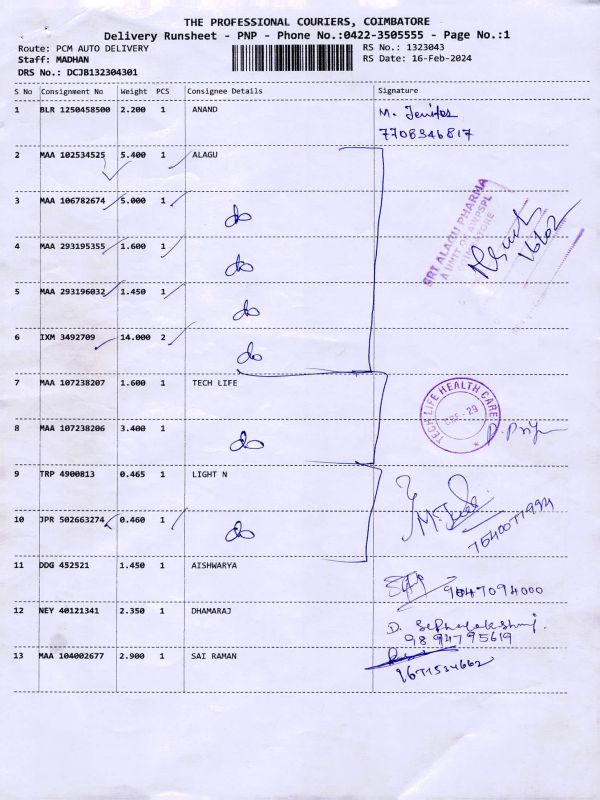 THE PROFESSIONAL COURIERS, COIMBATORE
Delivery Runsheet - PNP - Phone No.:0422-3505555 - Page No.:1
Route: PCM AUTO DELIVERY RS No.: 1323043
Staff: MADHAN RS Date: 16-Feb-2024
DRS No.: DCJB132304301
S No Consignment No Weight PCS Consignee Details Signature
1 BLR 1250458500 2.200 1 ANAND M.
7708346817
2 MAA 102534525 5.400 1 ALAGU
3 MAA 106782674 5.000 1 do
SRI ALAGU PHARMA
A UNIT OF
4 MAA 293195355 1.600 1 do
5 MAA 293196032 1.450 1 do
6 IXM 3492709 14.000 2 do
7 MAA 107238207 1.600 1 TECH LIFE
TECH LIFE HEALTH CARE
8 MAA 107238206 3.400 1 do
9 TRP 4900813 0.465 1 LIGHT N
10 JPR 502663274 0.460 1 do
11 DDG 452521 1.450 1 AISHWARYA
9047094000
12 NEY 40121341 2.350 1 DHAMARAJ D.
9894795619
13 MAA 104002677 2.900 1 SAI RAMAN
9671534662